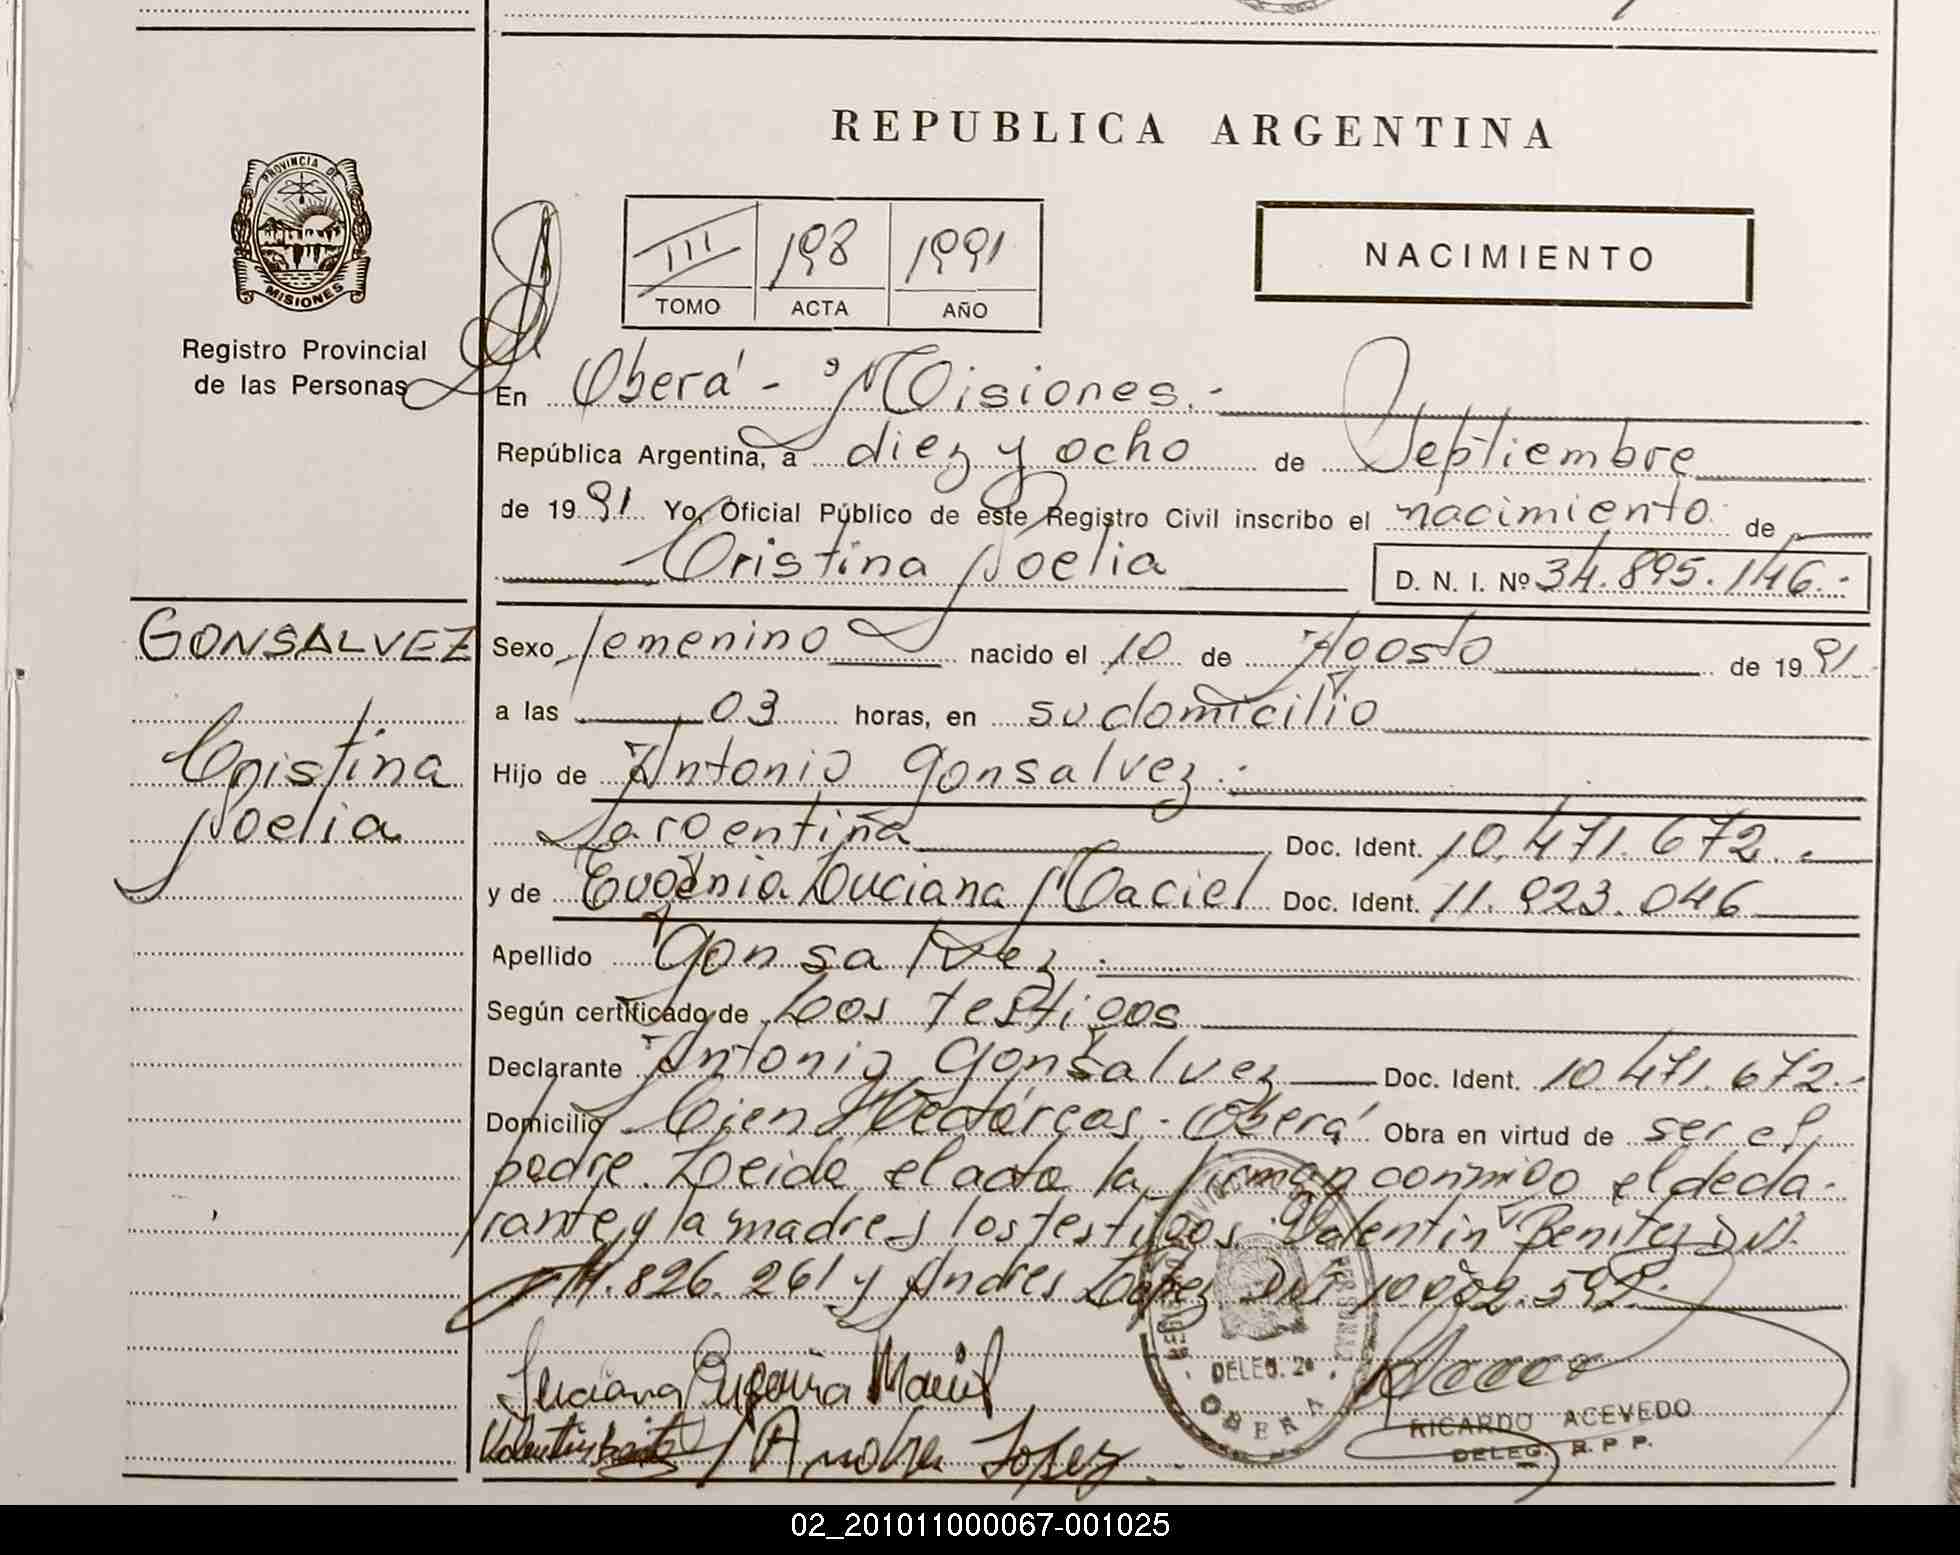 REPUBLICA ARGENTINA
PROVINCIA DE
MISIONES
Registro Provincial
de las Personas
III 198 1991
TOMO ACTA AÑO
NACIMIENTO
En Oberá - Misiones.-
República Argentina, a diez y ocho de Septiembre
de 1991 Yo, Oficial Público de este Registro Civil inscribo el nacimiento de
Cristina Noelia D. N. I. Nº 34.895.146.-
GONSALVEZ
Cristina
Noelia
Sexo femenino nacido el 10 de Agosto de 1991
a las 03 horas, en su domicilio
Hijo de Antonio Gonsalvez.-
argentina Doc. Ident. 10.471.672.-
y de Eugenia Luciana Maciel Doc. Ident. 11.923.046
Apellido Gonsalvez.-
Según certificado de Dos testigos
Declarante Antonio Gonsalvez Doc. Ident. 10.471.672.-
Domicilio Cien Hectáreas - Oberá Obra en virtud de ser el
padre. Leida el acta la firman conmigo el decla-
rante y la madre y los testigos Valentin Benitez D.N.
14.826.261 y Andres Lopez DNI
Luciana Eugenia Maciel
Andres Lopez
DELEG. 2ª
OBERA
RICARDO ACEVEDO
DELEG. R.P.P.
02_201011000067-001025